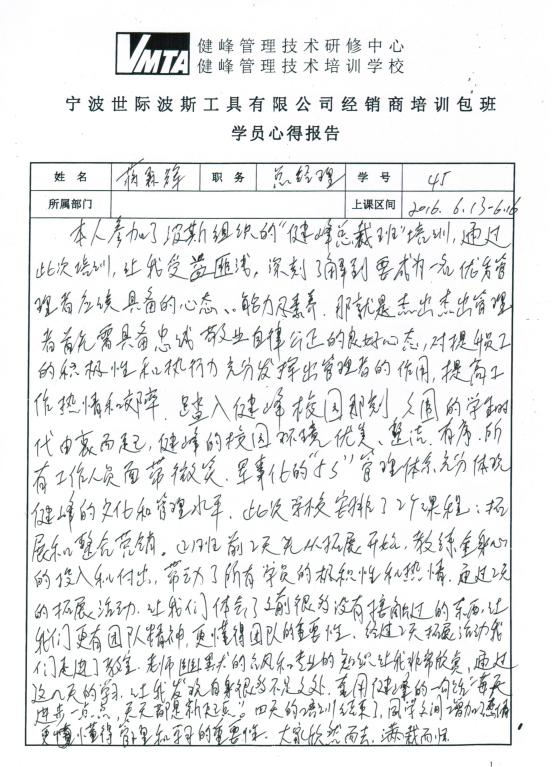 VMTA 健峰管理技术研修中心
健峰管理技术培训学校
宁波世际波斯工具有限公司经销商培训包班
学员心得报告
姓名 蒋森辉 职务 总经理 学号 45
所属部门 上课区间 2016.6.13-6.16
本人参加了波斯组织的“健峰总裁班”培训,通过
此次培训,让我受益匪浅,深刻了解到要成为一名优秀管
理者应该具备的心态、能力及素养。那就是杰出杰出管理
者首先需具备忠诚 敬业自律公正的良好心态,对提升员工
的积极性和执行力充分发挥出管理者的作用,提高工
作热情和效率。踏入健峰校园那刻,久围的学生时
代由衷而起,健峰的校园环境优美、整洁、有序,所
有工作人员面带微笑,军事化的“5S”管理体系充分体现
健峰的文化和管理水平。此次学校安排了2个课程:拓
展和整合营销。前2天先从拓展开始,教练全身心
的投入和付出,带动了所有学员的积极性和热情,通过2天
的拓展活动,让我们体会了之前很多没有接触过的东西,让
我们更有团队精神,更懂得团队的重要性。经过2天拓展活动我
们走进了教室,老师幽默的和专业的知识让我非常欣赏,通过
这几天的学习,让我发现自身很多不足之处,套用健峰的一句话“每天
进步一点点,天天都是新起点”。四天的培训结束了,同学之间增加了感情
更懂懂得学习和的重要性。大家欣然而去,满载而归。
1